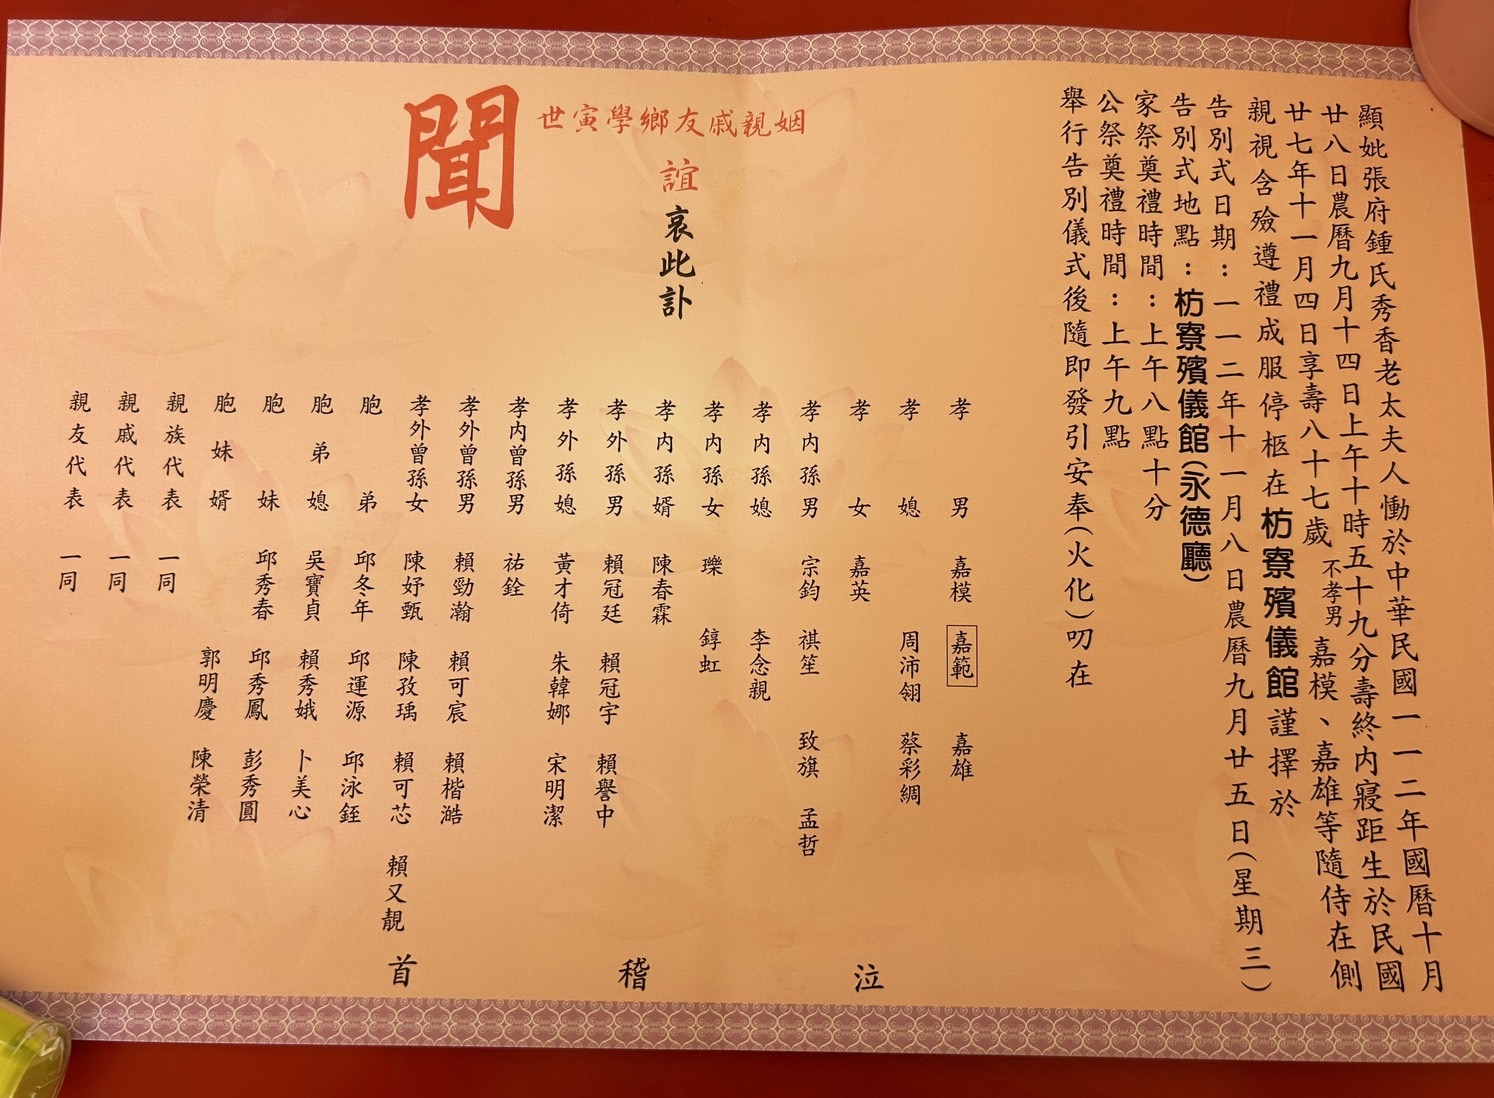 顯妣張府鍾氏秀香老太夫人慟於中華民國一一二年國曆十月
廿八日農曆九月十四日上午十時五十九分壽終內寢距生於民國
廿七年十一月四日享壽八十七歲不孝男嘉模、嘉雄等隨侍在側
親視含殮遵禮成服停柩在枋寮殯儀館謹擇於
告別式日期:一一二年十一月八日農曆九月廿五日(星期三)
告別式地點:枋寮殯儀館(永德廳)
家祭奠禮時間:上午八點十分
公祭奠禮時間:上午九點
舉行告別儀式後隨即發引安奉(火化)叨在
姻親戚友鄉學寅世
誼哀此訃
聞
孝男 嘉模 嘉範 嘉雄
孝媳 周沛翎 蔡彩綢
孝女 嘉英
孝內孫男 宗鈞 祺笙 致旗 孟哲
孝內孫媳 李念親
孝內孫女 瓅 錞虹
孝內孫婿 陳春霖
孝外孫男 賴冠廷 賴冠宇 賴譽中
孝外孫媳 黃才倚 朱韓娜 宋明潔
孝內曾孫男 祐銓
孝外曾孫男 賴勁瀚 賴可宸 賴楷澔
孝外曾孫女 陳妤甄 陳孜瑀 賴可芯 賴又靚
胞弟 邱冬年 邱運源 邱泳銍
胞弟媳 吳寶貞 賴秀娥 卜美心
胞妹 邱秀春 邱秀鳳 彭秀圓
胞妹婿 郭明慶 陳榮清
親族代表 一同
親戚代表 一同
親友代表 一同
泣稽首